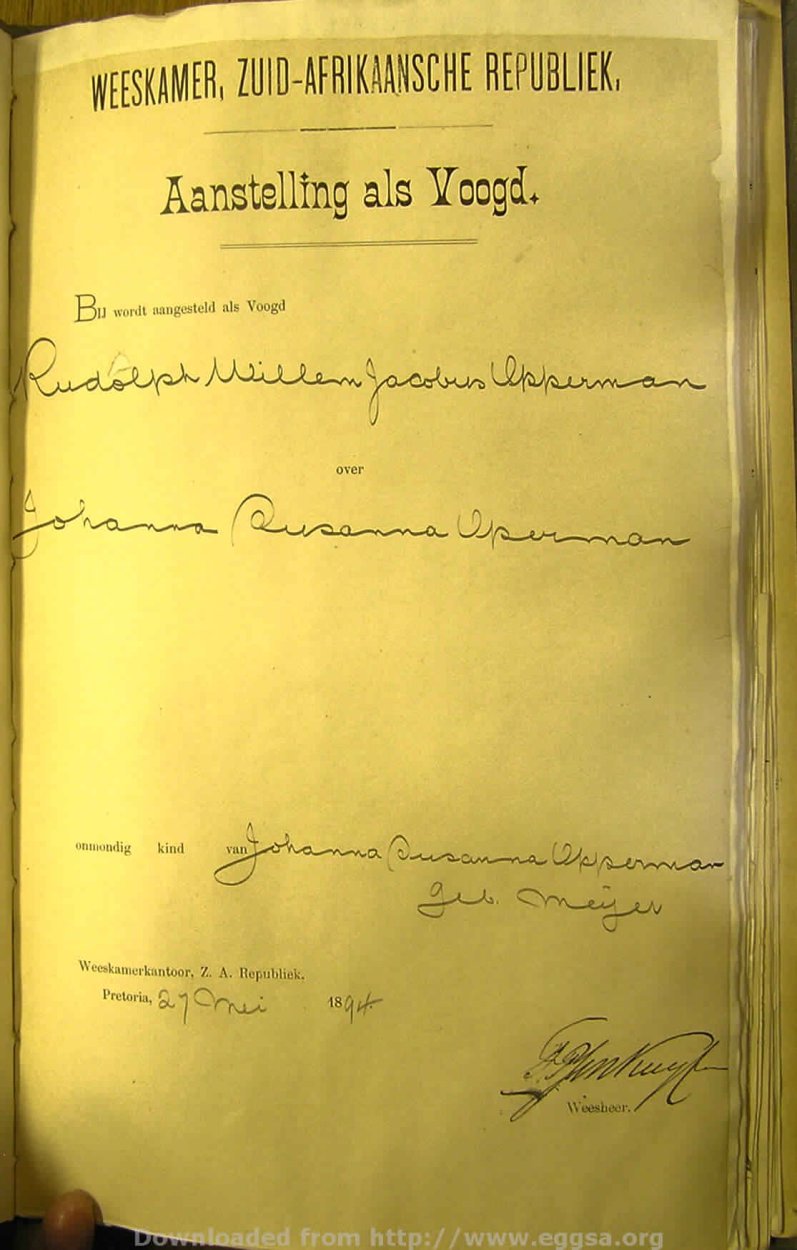 WEESKAMER, ZUID-AFRIKAANSCHE REPUBLIEK.
Aanstelling als Voogd.
BIJ wordt aangesteld als Voogd
Rudolph Willem Jacobus Opperman
over
Johanna Susanna Operman
onmondig kind van Johanna Susanna Opperman
geb. Meijer
Weeskamerkantoor, Z. A. Republiek.
Pretoria, 27 Mei 1894
Weesheer.
Downloaded from http://www.eggsa.org